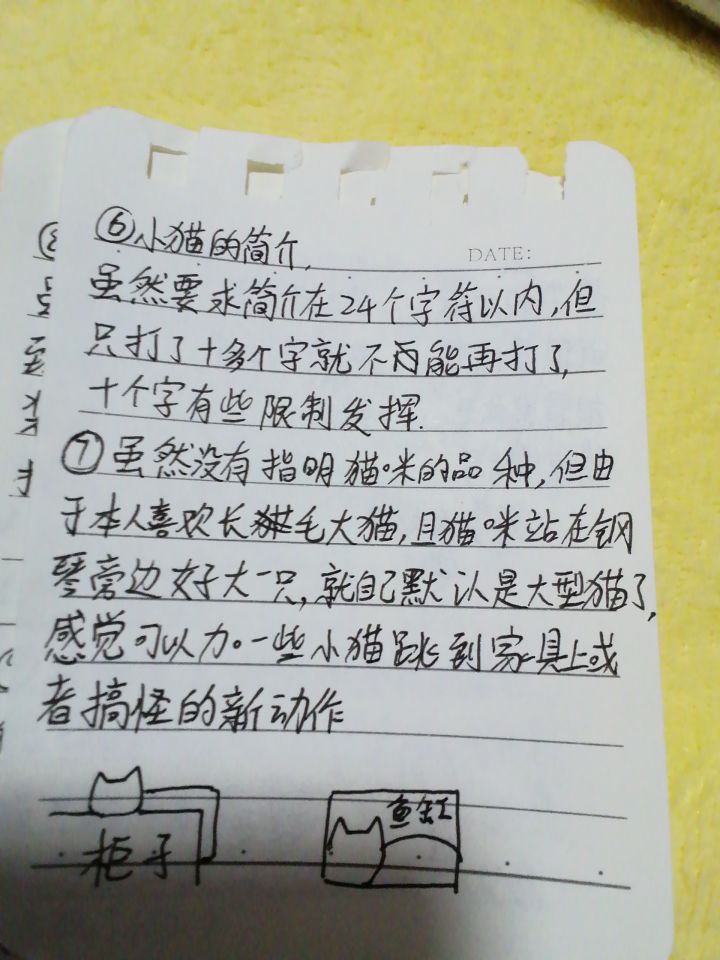 ⑥小猫的简介.
DATE:
虽然要求简介在24个字符以内,但
只打了十多个字就不能再打了,
十个字有些限制发挥.
⑦虽然没有指明猫咪的品种,但由
于本人喜欢长毛大猫,且猫咪站在钢
琴旁边好大一只,就自己默认是大型猫了,
感觉可以加一些小猫跳到家具上或
者搞怪的新动作
柜子
鱼缸
③